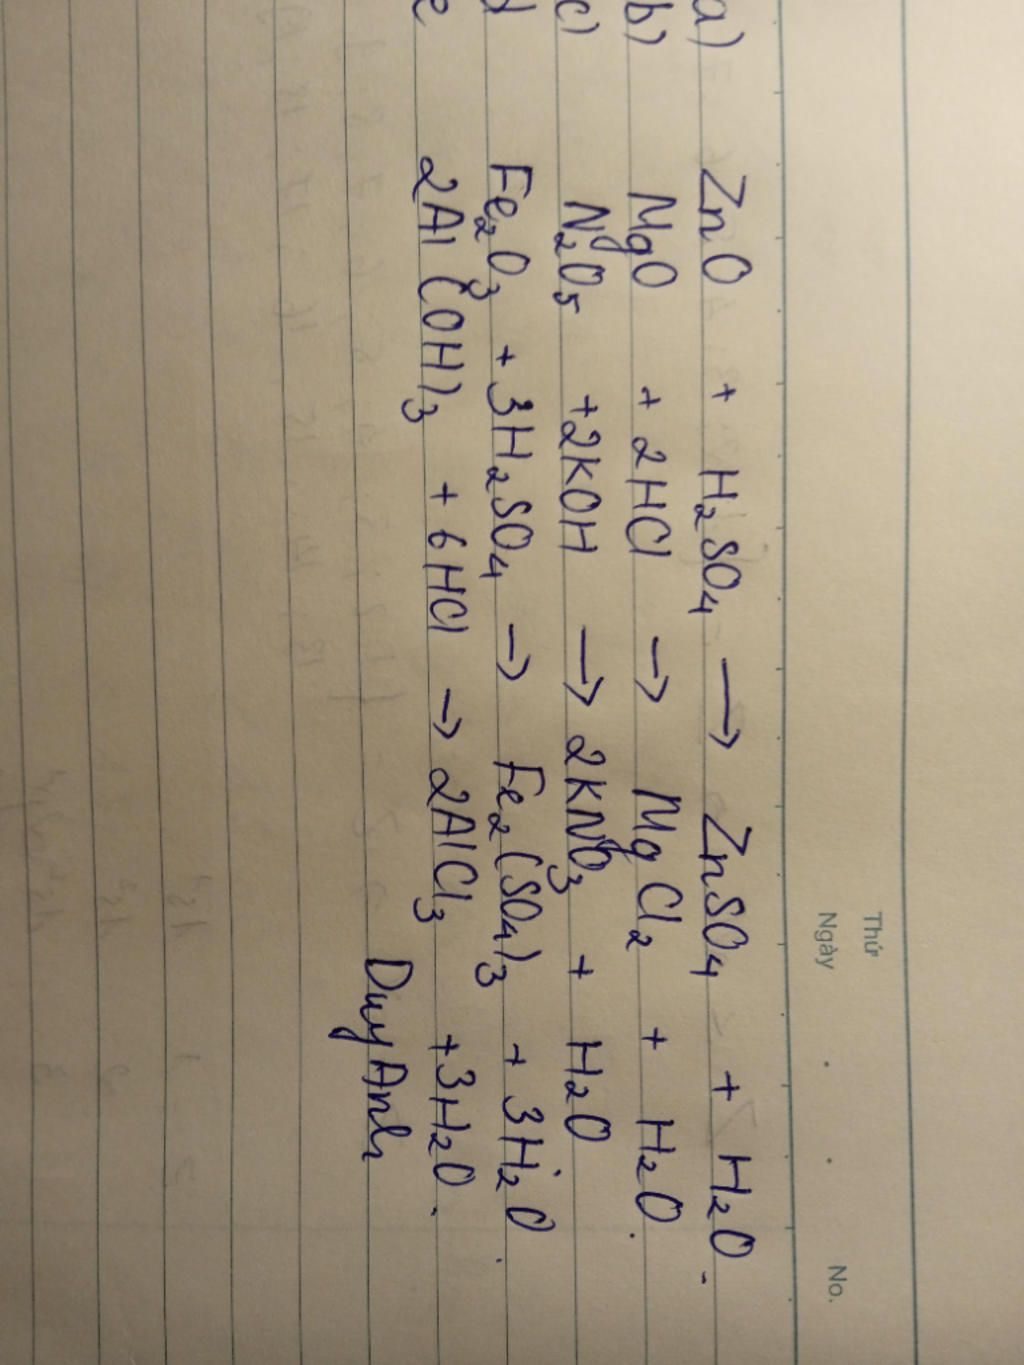 Thứ
Ngày . . No.
a) ZnO + H₂SO₄ → ZnSO₄ + H₂O.
b) MgO + 2HCl → MgCl₂ + H₂O.
c) N₂O₅ + 2KOH → 2KNO₃ + H₂O
d Fe₂O₃ + 3H₂SO₄ → Fe₂(SO₄)₃ + 3H₂O.
e 2Al(OH)₃ + 6HCl → 2AlCl₃ + 3H₂O.
Duy Anh